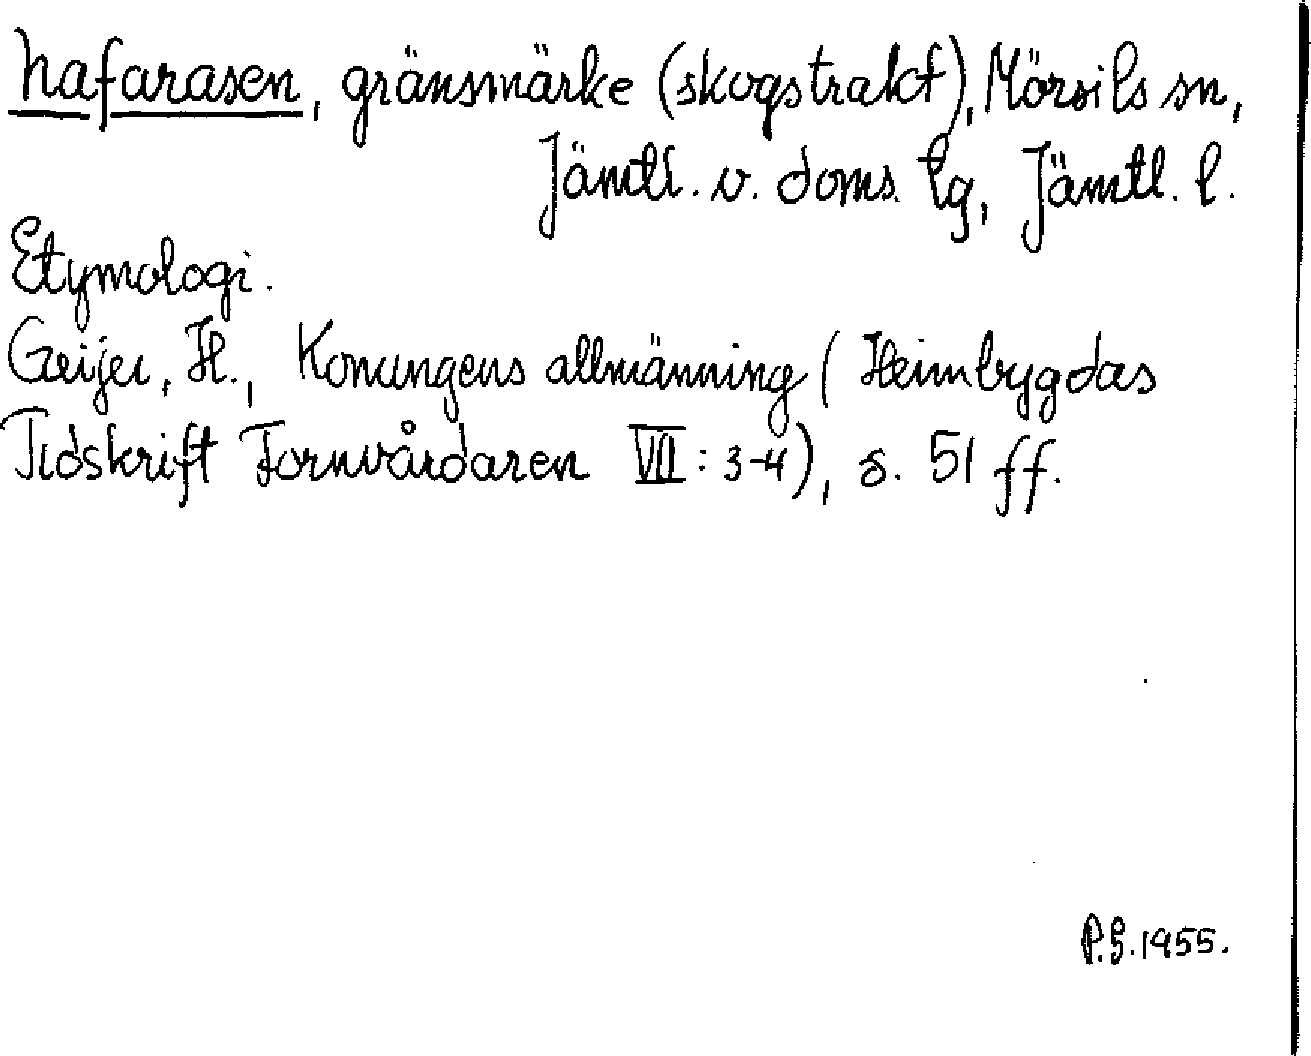 hafarasen, gränsmärke (skogstrakt), Mörsils sn,
Jämtl. v. doms. lg, Jämtl. l.
Etymologi.
Geijer, H., Konungens allmänning (Heimbygdas
Tidskrift Fornvårdaren VII: 3-4), s. 51 ff.
P.G. 1955.